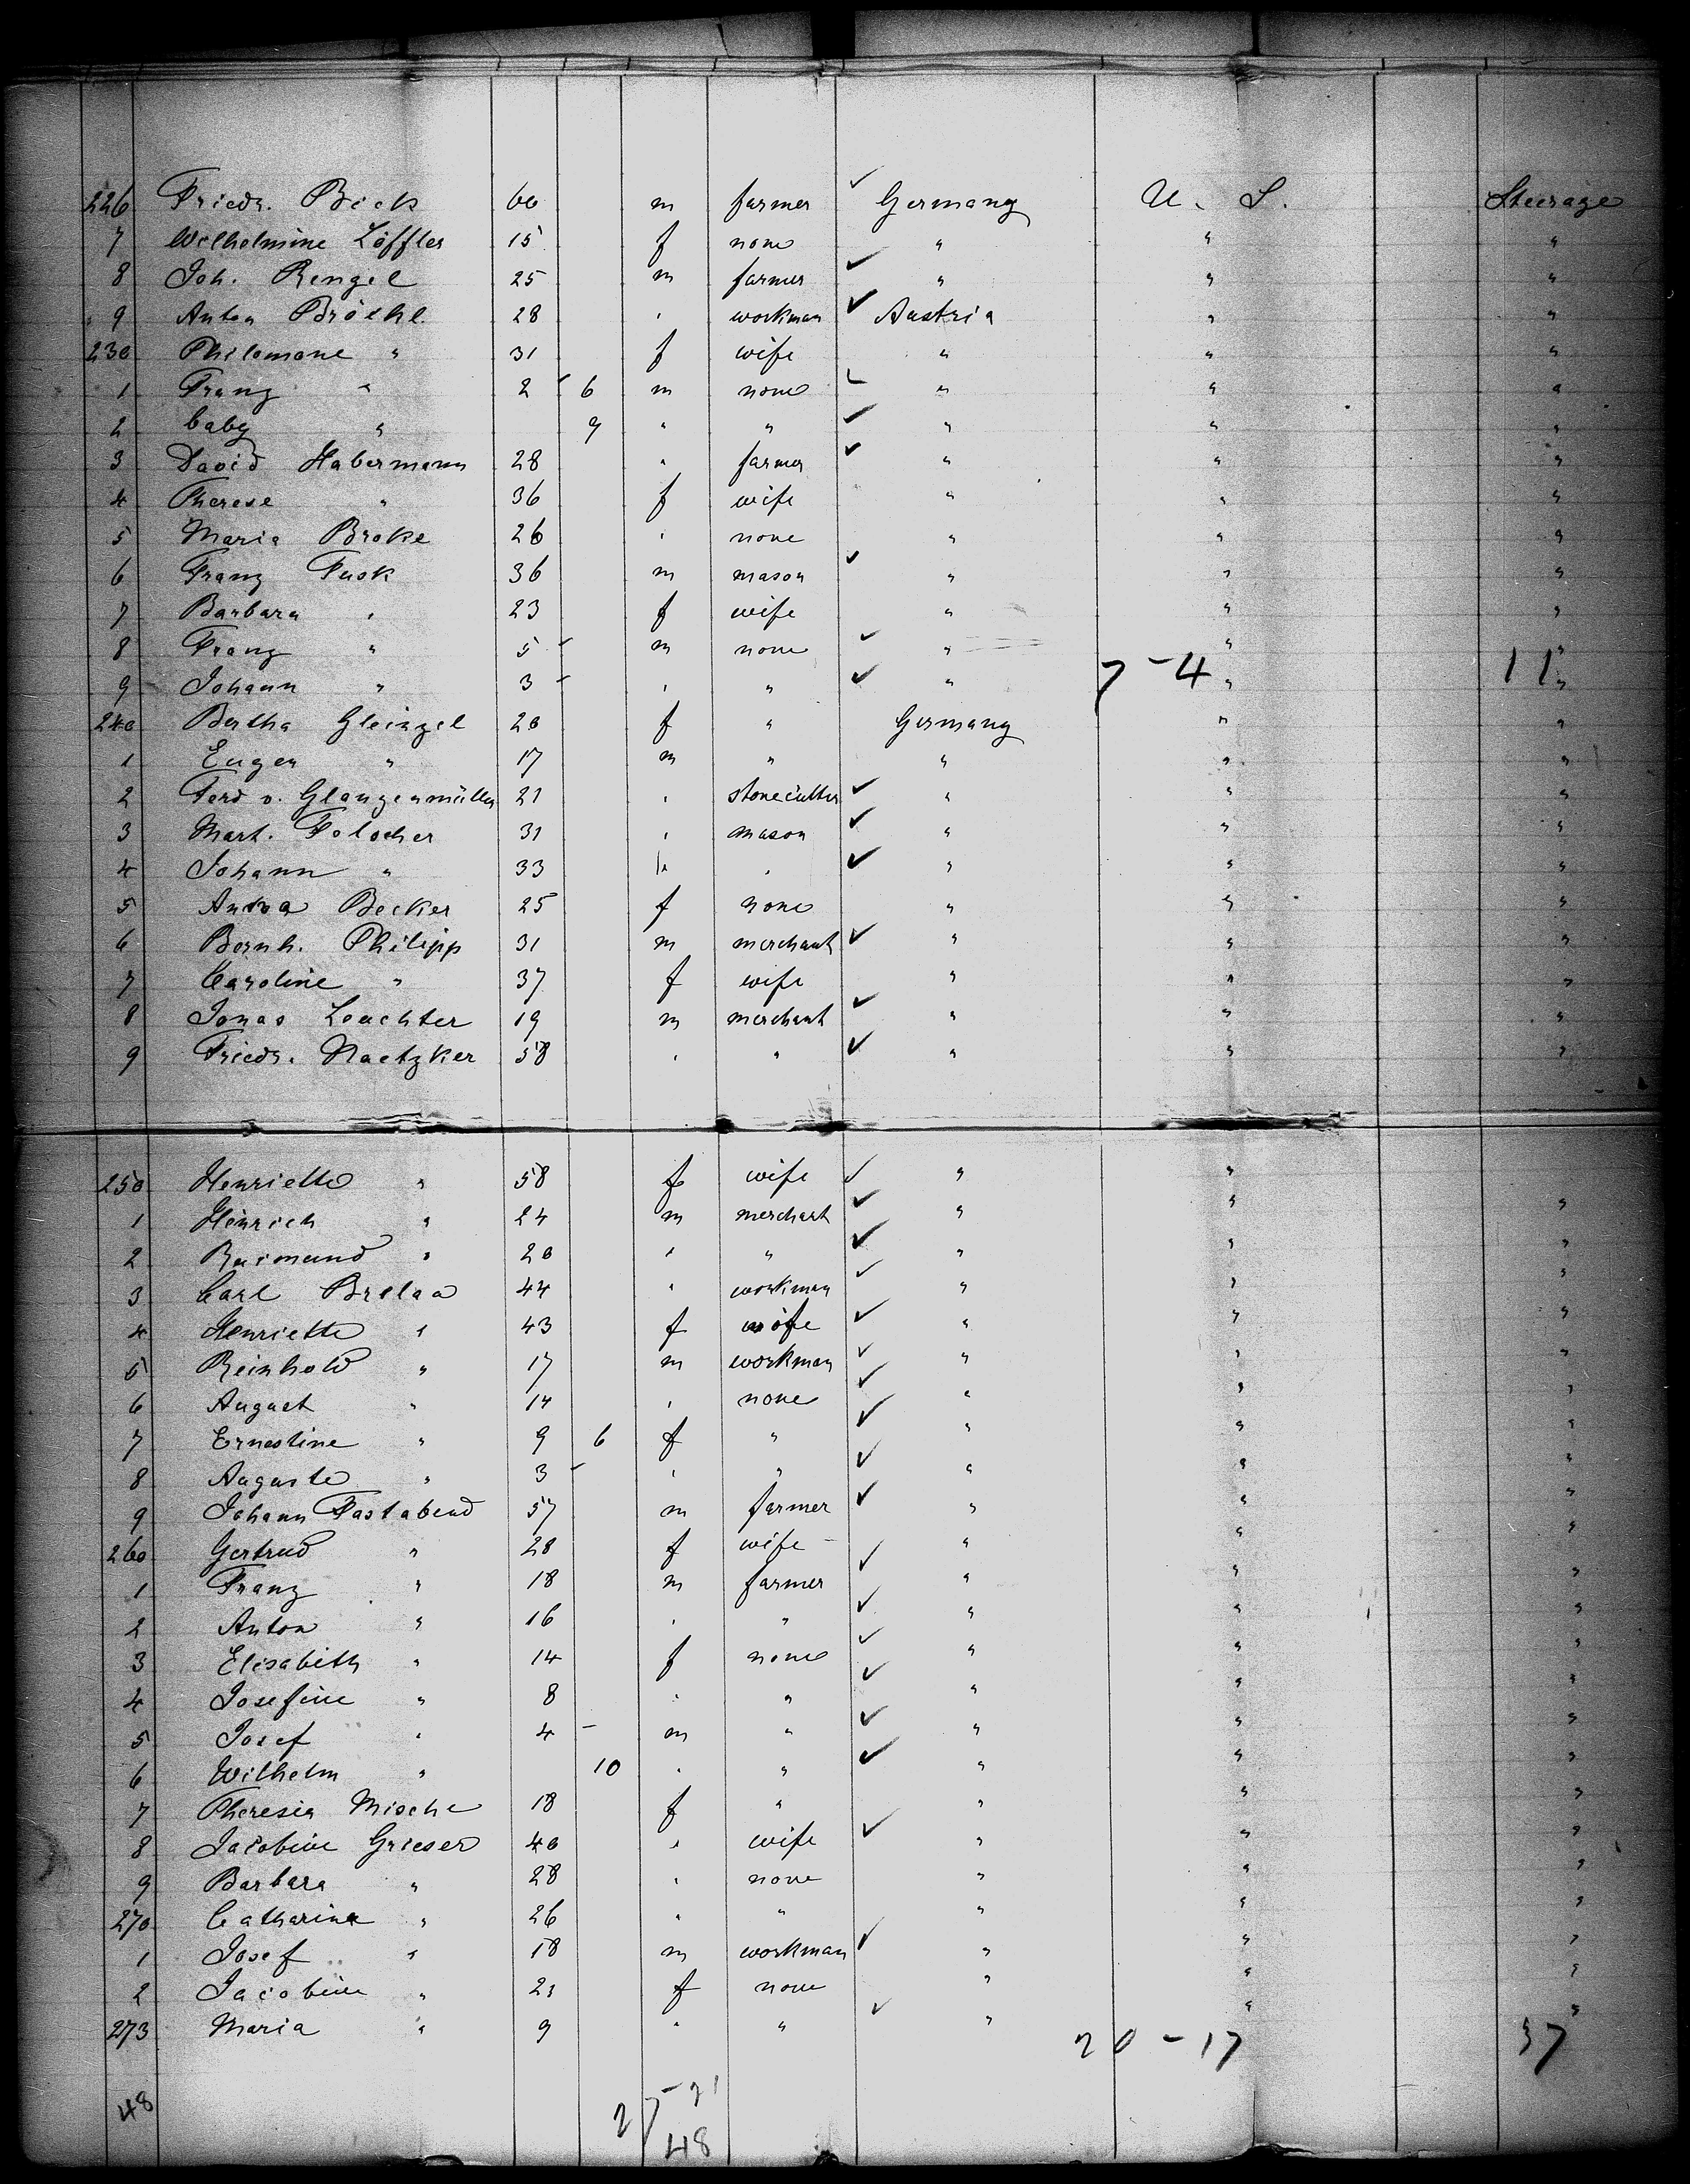 226 Friedr. Bick 60 m farmer ✓ Germany U. S. Steerage
7 Wilhelmine Löffler 15 f none " " "
8 Joh. Rengel 25 m farmer ✓ " " "
9 Anton Bröckl 28 " workman ✓ Austria " "
230 Philomone " 31 f wife " " "
1 Franz " 2 6 m none ✓ " " "
2 baby " 9 " " ✓ " " "
3 David Habermann 28 " farmer ✓ " " "
4 Therese " 36 f wife " " "
5 Maria Broke 26 " none " " "
6 Franz Fuck 36 m mason ✓ " " "
7 Barbara " 23 f wife " " "
8 Franz " 5 - m none ✓ " " "
9 Johann " 3 - " " ✓ " 7-4 " 11 "
240 Bertha Gleinzel 20 f " Germany " "
1 Eugen " 17 m " " " "
2 Ferd v. Glanzenmüller 21 " stonecutter ✓ " " "
3 Mart. Folocher 31 " mason ✓ " " "
4 Johann " 33 " " ✓ " " "
5 Anna Becker 25 f none " " "
6 Bernh. Philipp 31 m merchant ✓ " " "
7 Caroline " 37 f wife " " "
8 Jonas Leuchter 19 m merchant ✓ " " "
9 Friedr. Naetzker 58 " " ✓ " " "
250 Henriette " 58 f wife ✓ " "
1 Heinrich " 24 m merchant ✓ " " "
2 Raimund " 20 " " ✓ " " "
3 Carl Brelaa 44 " workman ✓ " " "
4 Henriette " 43 f wife ✓ " " "
5 Reinhold " 17 m workman ✓ " " "
6 August " 14 " none ✓ " " "
7 Ernestine " 9 6 f " ✓ " " "
8 Auguste " 3 - " " ✓ " " "
9 Johann Fastabend 57 m farmer ✓ " " "
260 Gertrud " 28 f wife - " " "
1 Franz " 18 m farmer ✓ " " "
2 Anton " 16 " " ✓ " " "
3 Elisabeth " 14 f none ✓ " " "
4 Josefine " 8 " " ✓ " " "
5 Josef " 4 - m " ✓ " " "
6 Wilhelm " 10 " " ✓ " " "
7 Theresia Mische 18 f " " " "
8 Jacobine Grieser 40 " wife ✓ " " "
9 Barbara " 28 " none " " "
270 Catharina " 26 " " " " "
1 Josef " 18 m workman ✓ " " "
2 Jacobine " 21 f none " " "
273 Maria " 9 " " ✓ " " "
20-17 37
48 27-21
48